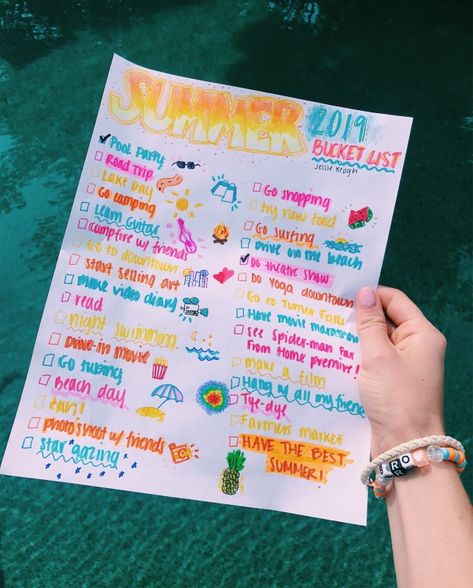 SUMMER
2019
BUCKET LIST
Jessie Keogh
Pool Party
Road Trip
Lake Day
Go camping
Learn Guitar
campfire w/ friends
Go to downtown
start selling art
Make video diary
read
night swimming
Drive-in movie
Go tubing
Beach day
Tan!
photoshoot w/ friends
star gazing
Go shopping
try new food
Go surfing
Drive on the beach
Do theatre show
Do Yoga downtown
Go to Turner Falls
Have movie marathon
see Spider-man Far
From Home premire!
make a film
Hang w/ all my friends
Tye-dye
Farmers market
HAVE THE BEST
SUMMER!
BRO